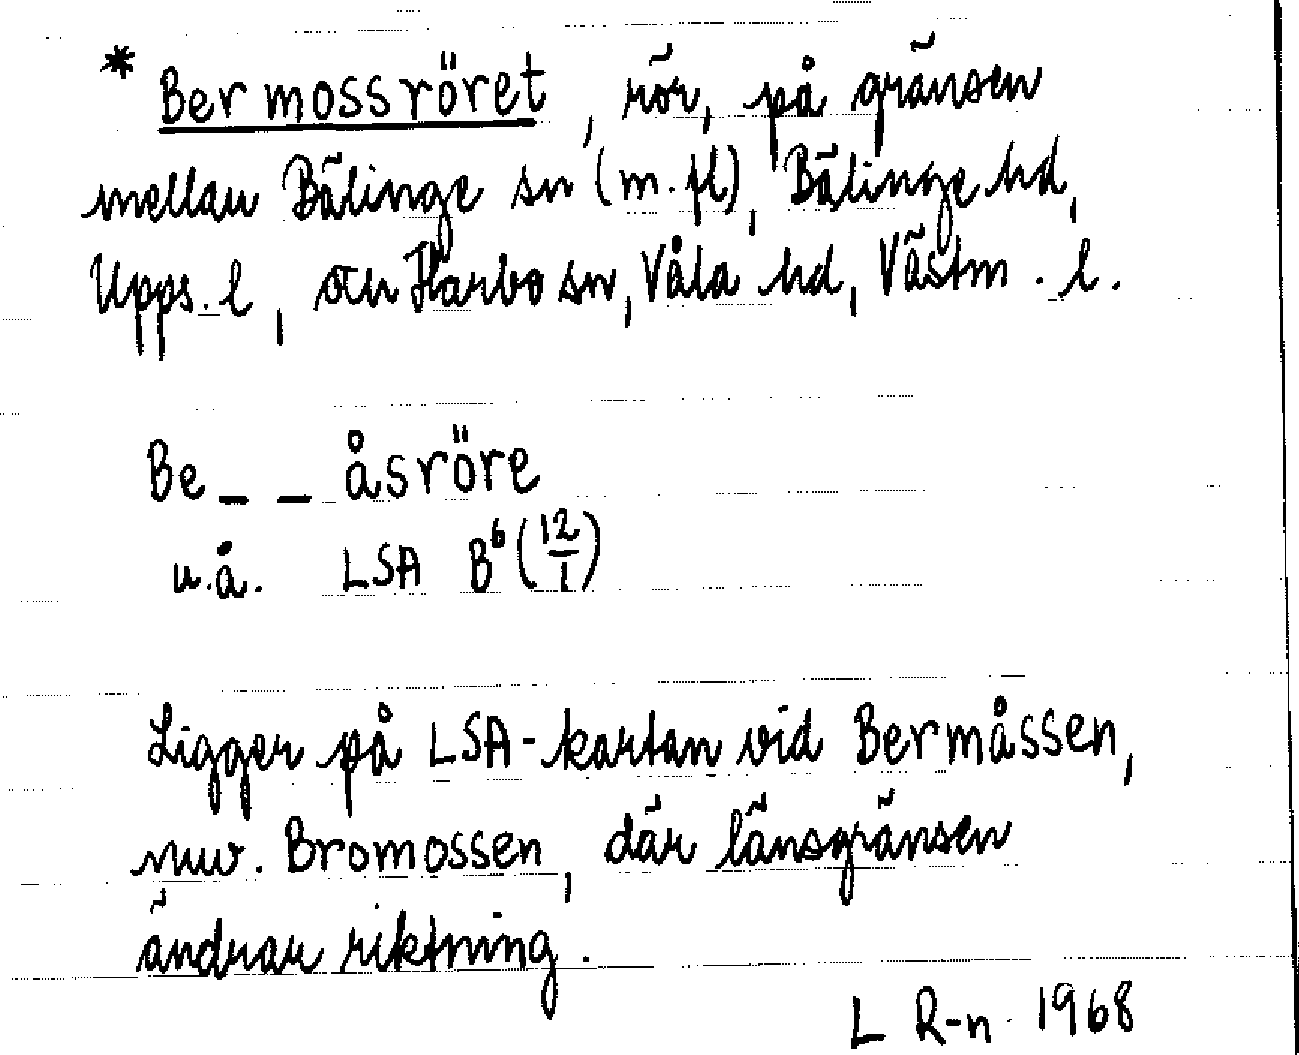 * Bermossröret, rör, på gränsen
mellan Bälinge sn (m.fl), Bälinge hd,
Upps. l, och Harbo sn, Våla hd, Västm. l.
Be _ _ åsröre
u.å. LSA B⁶ (12/1)
Ligger på LSA-kartan vid Bermåssen,
nuv. Bromossen, där länsgränsen
ändrar riktning.
L R-n 1968